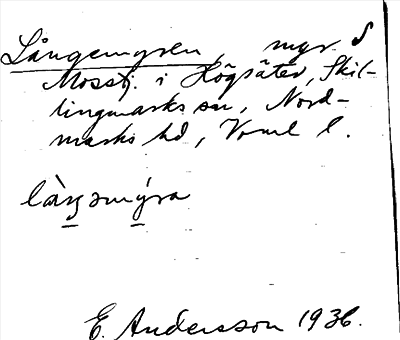 Långemyren, myr. S
Mosstj. i Högsäter, Skil-
lingmarks sn, Nord-
marks hd, Vrml l.
làŋəmýra
E. Andersson 1936.